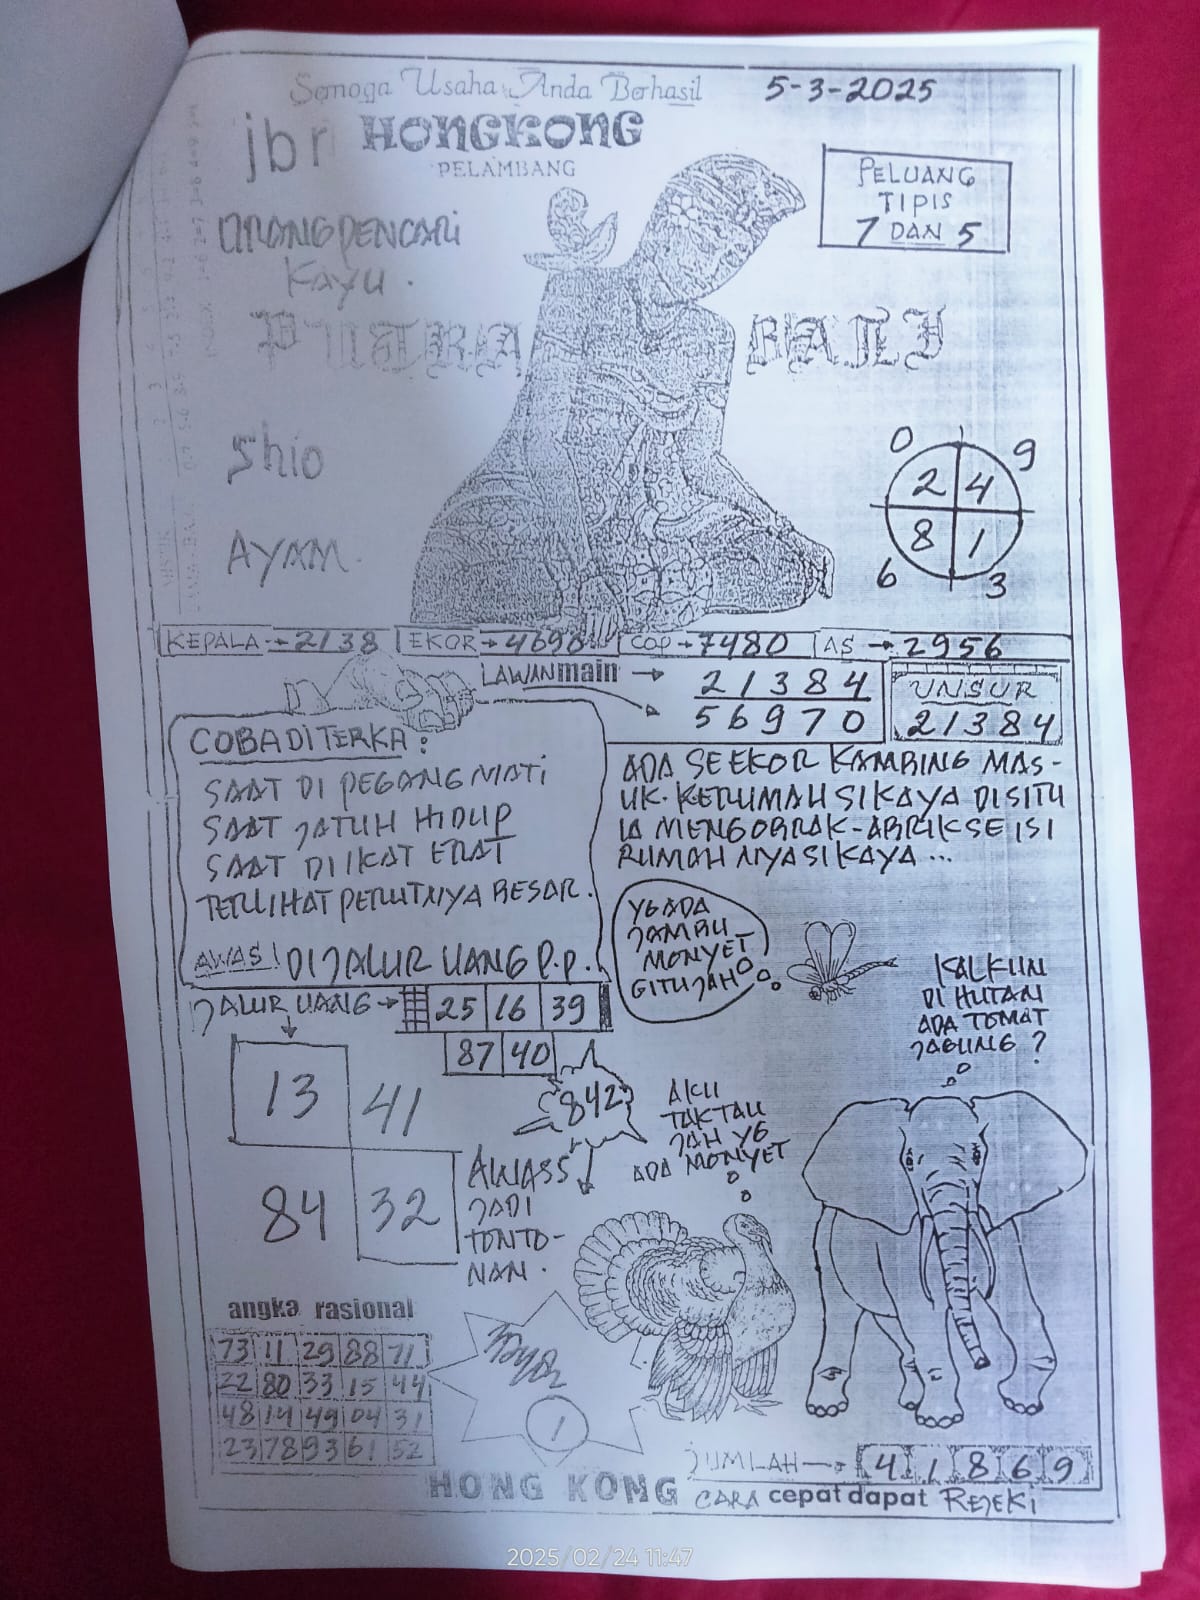 Semoga Usaha Anda Berhasil
5-3-2025
jbr HONGKONG
PELAMBANG
PELUANG
TIPIS
7 DAN 5
ORANG PENCARI
KAYU.
PUTRA BALI
Shio
AYAM
0 9
2 4
8 1
6 3
KEPALA → 2138 EKOR → 4690 COP → 7480 AS → 2956
LAWAN main → 21384
56970
UNSUR
21384
COBA DITERKA :
SAAT DI PEGANG MATI
SAAT JATUH HIDUP
SAAT DI IKAT ERAT
TERLIHAT PERUTNYA BESAR.
AWAS! DIJALUR UANG P.P.
ADA SEEKOR KAMBING MAS-
UK. KERUMAH SIKAYA DISITU
IA MENGOBRAK-ABRIK SE ISI
RUMAH NYA SIKAYA ...
YG ADA
JAMBU
MONYET
GITU JAH
KALKUN
DI HUTAN
ADA TOMAT
JAGUNG ?
JALUR UANG → 25 16 39
87 40
13 41
84 32
842
AWASS
JADI
TONTO-
NAN.
AKU
TAK TAU
JAH YG
ADA MONYET
angka rasional
73 11 29 88 71
22 80 33 15 44
48 14 49 04 31
23 78 93 61 52
1
JUMLAH → 4 1 8 6 9
HONG KONG CARA cepat dapat REJEKI
2025/02/24 11:47